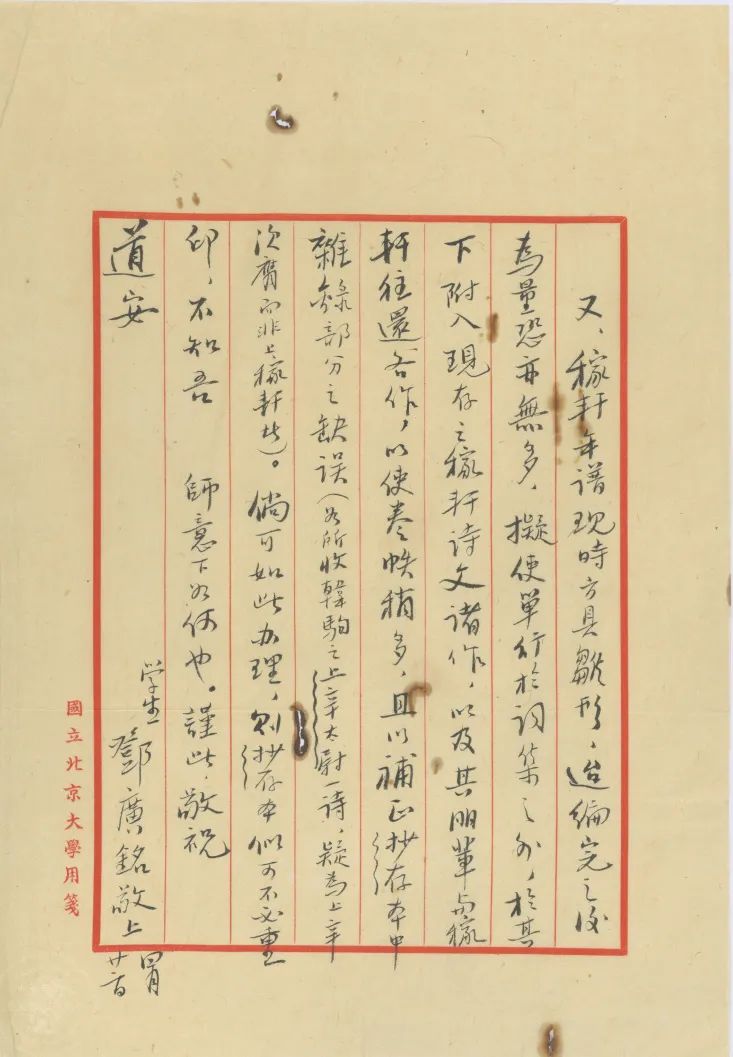 又，稼軒年譜現時方具雛形，迨編完之後
為量恐亦無多，擬使單行於詞集之外，於其
下附入現存之稼軒詩文諸作，以及其朋輩與稼
軒往還各作，以使卷帙稍多，且以補正抄存本中
雜錄部分之缺誤（如所收韓駒之上辛太尉一詩，疑為上辛
次膺而非上稼軒者）。倘可如此办理，則抄存本似可不必重
印，不知吾　師意下如何也。謹此，敬祝
道安
学生　鄧廣銘敬上
國立北京大學用箋